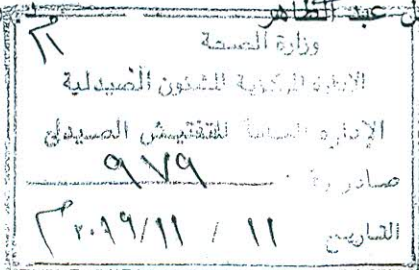 عبد الظاهر
وزارة الصحة
الإدارة المركزية للشئون الصيدلية
الإدارة العامة للتفتيش الصيدلي
صادر رقم ٩٧٩
التاريخ ١١ / ١١ / ٢٠١٩ م